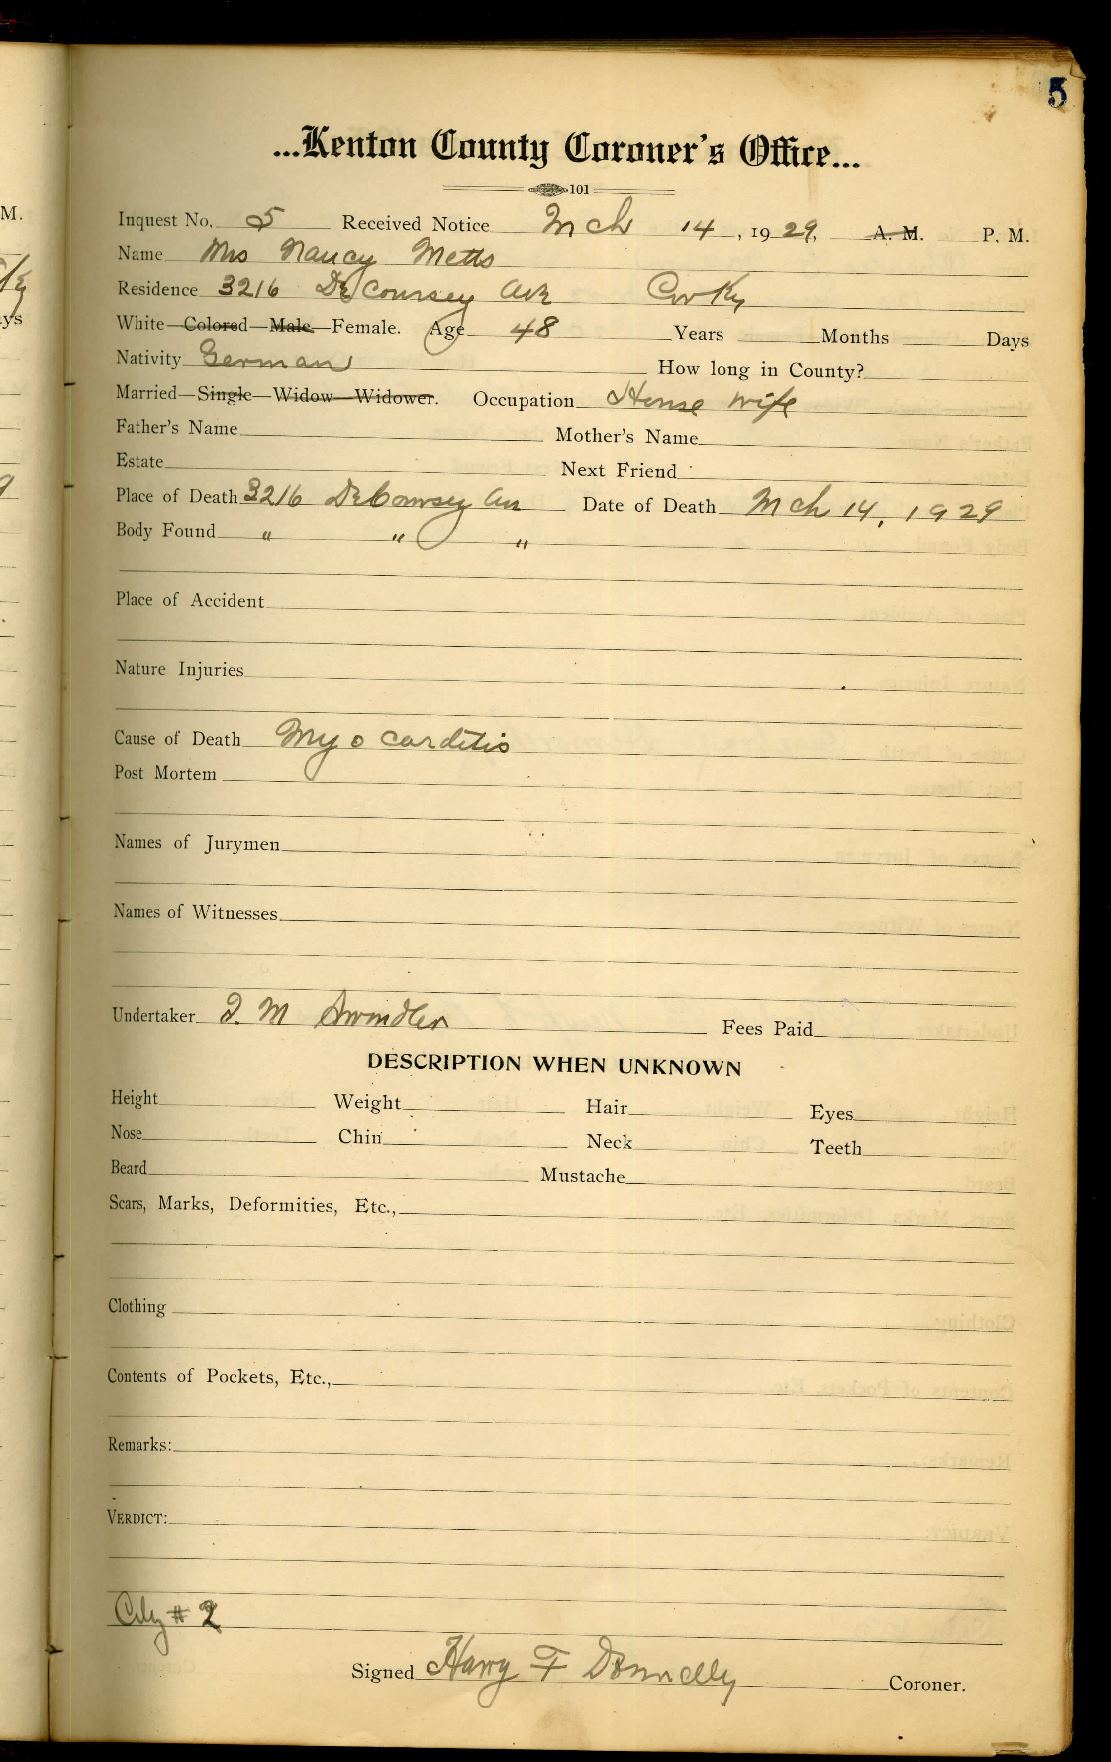 5
...Kenton County Coroner's Office...
101
Inquest No. 5 Received Notice Mch 14, 1929, A. M. P. M.
Name Mrs Nancy Metts
Residence 3216 DeCoursey Ave Cov Ky
White—Colored—Male—Female. Age 48 Years Months Days
Nativity German How long in County?
Married—Single—Widow—Widower. Occupation House wife
Father's Name Mother's Name
Estate Next Friend
Place of Death 3216 DeCoursey Av Date of Death Mch 14, 1929
Body Found " " "
Place of Accident
Nature Injuries
Cause of Death Myo carditis
Post Mortem
Names of Jurymen
Names of Witnesses
Undertaker M Swindler Fees Paid
DESCRIPTION WHEN UNKNOWN
Height Weight Hair Eyes
Nose Chin Neck Teeth
Beard Mustache
Scars, Marks, Deformities, Etc.,
Clothing
Contents of Pockets, Etc.,
Remarks:
VERDICT:
City # 2
Signed Harry F Donnelly Coroner.